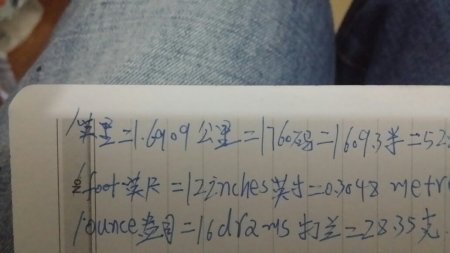 1英里=1.6909公里=1760码=1609.3米=52
1foot英尺=12inches英寸=0.3048 metre
1ounce盎司=16drams打兰=28.35克